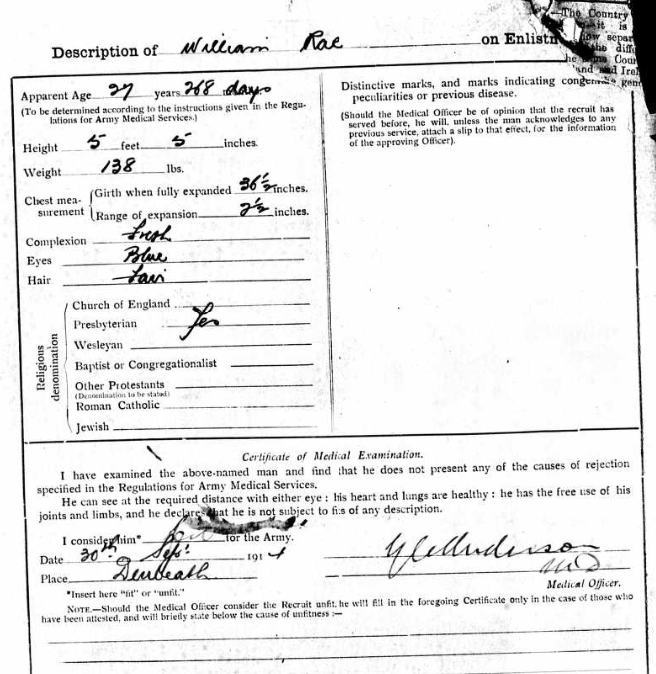 —The Country
it is
how separ
the diff
he Coun
and Irel
gen
Description of William Rae on Enlistn
Apparent Age 27 years 268 days
(To be determined according to the instructions given in the Regu-
lations for Army Medical Services.)
Height 5 feet 5 inches.
Weight 138 lbs.
Chest mea-
surement
Girth when fully expanded 36½ inches.
Range of expansion 2½ inches.
Complexion Fresh
Eyes Blue
Hair Fair
Religious
denomination
Church of England
Presbyterian Yes
Wesleyan
Baptist or Congregationalist
Other Protestants
(Denomination to be stated)
Roman Catholic
Jewish
Distinctive marks, and marks indicating congenital
peculiarities or previous disease.
(Should the Medical Officer be of opinion that the recruit has
served before, he will, unless the man acknowledges to any
previous service, attach a slip to that effect, for the information
of the approving Officer).
Certificate of Medical Examination.
I have examined the above-named man and find that he does not present any of the causes of rejection
specified in the Regulations for Army Medical Services.
He can see at the required distance with either eye ; his heart and lungs are healthy ; he has the free use of his
joints and limbs, and he declares that he is not subject to fits of any description.
I consider him* fit for the Army.
Date 30th Sept. 1914
Place Denbeath
Anderson
M D
Medical Officer.
*Insert here "fit" or "unfit."
NOTE.—Should the Medical Officer consider the Recruit unfit, he will fill in the foregoing Certificate only in the case of those who
have been attested, and will briefly state below the cause of unfitness :—